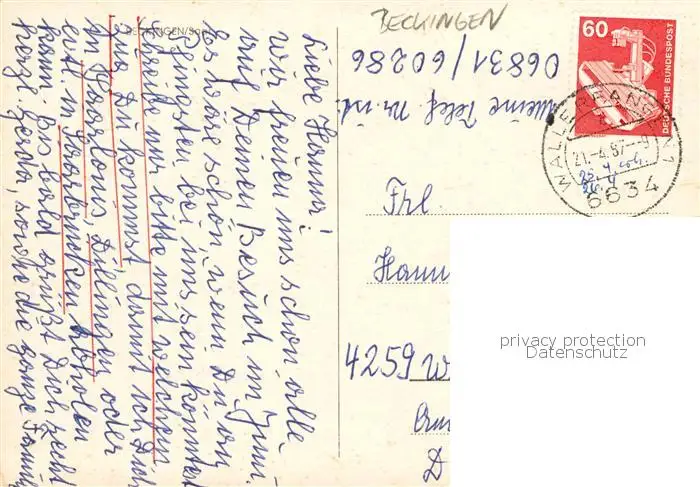 BECKINGEN
BECKINGEN/Saar
Liebe Hanna!
Wir freuen uns schon alle
auf Deinen Besuch im Juni.
Es wäre schön, wenn Du an
Pfingsten bei uns sein könntest.
Schreibe mir bitte mit welchem
Zug Du kommst damit ich Dich
in Saarlouis, Dillingen oder
evtl. in Saarbrücken abholen
kann. Bis bald grüßt Dich recht
herzl. Gerda, sowie die ganze Familie
Meine Telef. Nr. ist
06831/60286
60
DEUTSCHE BUNDESPOST
WALLERFANGEN 1
21.-4.87.--9
6634
Frl.
Hann
4259 W
D
privacy protection
Datenschutz